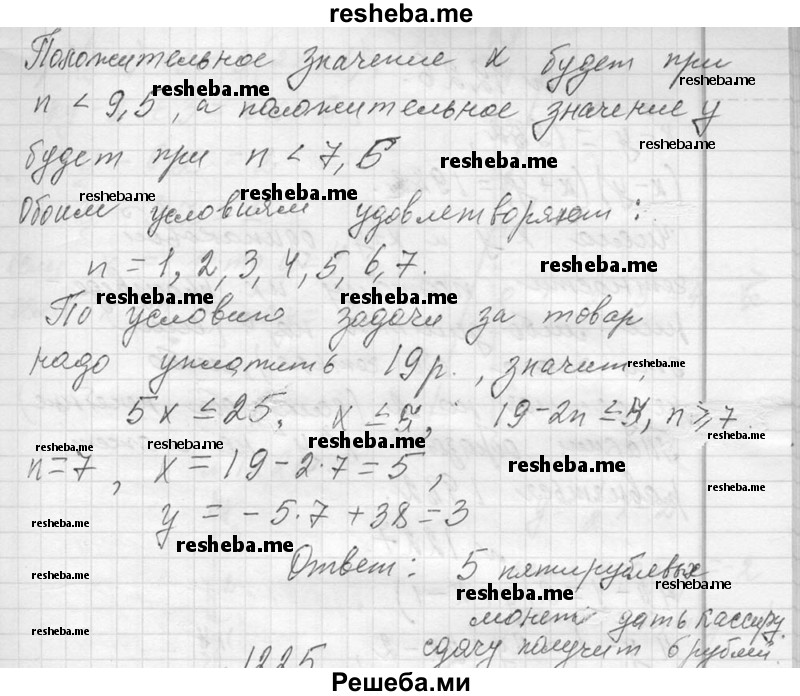 resheba.me
Положительное значение x будет при
resheba.me resheba.me
n < 9,5, а положительное значение y
resheba.me
будет при n < 7,6
resheba.me
resheba.me resheba.me
Обоим условиям удовлетворяют:
n = 1, 2, 3, 4, 5, 6, 7.
resheba.me
resheba.me resheba.me
По условию задачи за товар
надо уплатить 19 р., значит,
resheba.me
5x ≤ 25, x ≤ 5; 19-2n ≤ 5, n ≥ 7.
resheba.me resheba.me resheba.me resheba.me
n=7, x = 19 - 2·7 = 5,
resheba.me
resheba.me
y = -5·7 + 38 = 3
resheba.me resheba.me
resheba.me
Ответ: 5 пятирублевых
resheba.me resheba.me
может дать кассиру,
resheba.me
сдачу получит 6 рублей.
1225
resheba.me
Решеба.ми